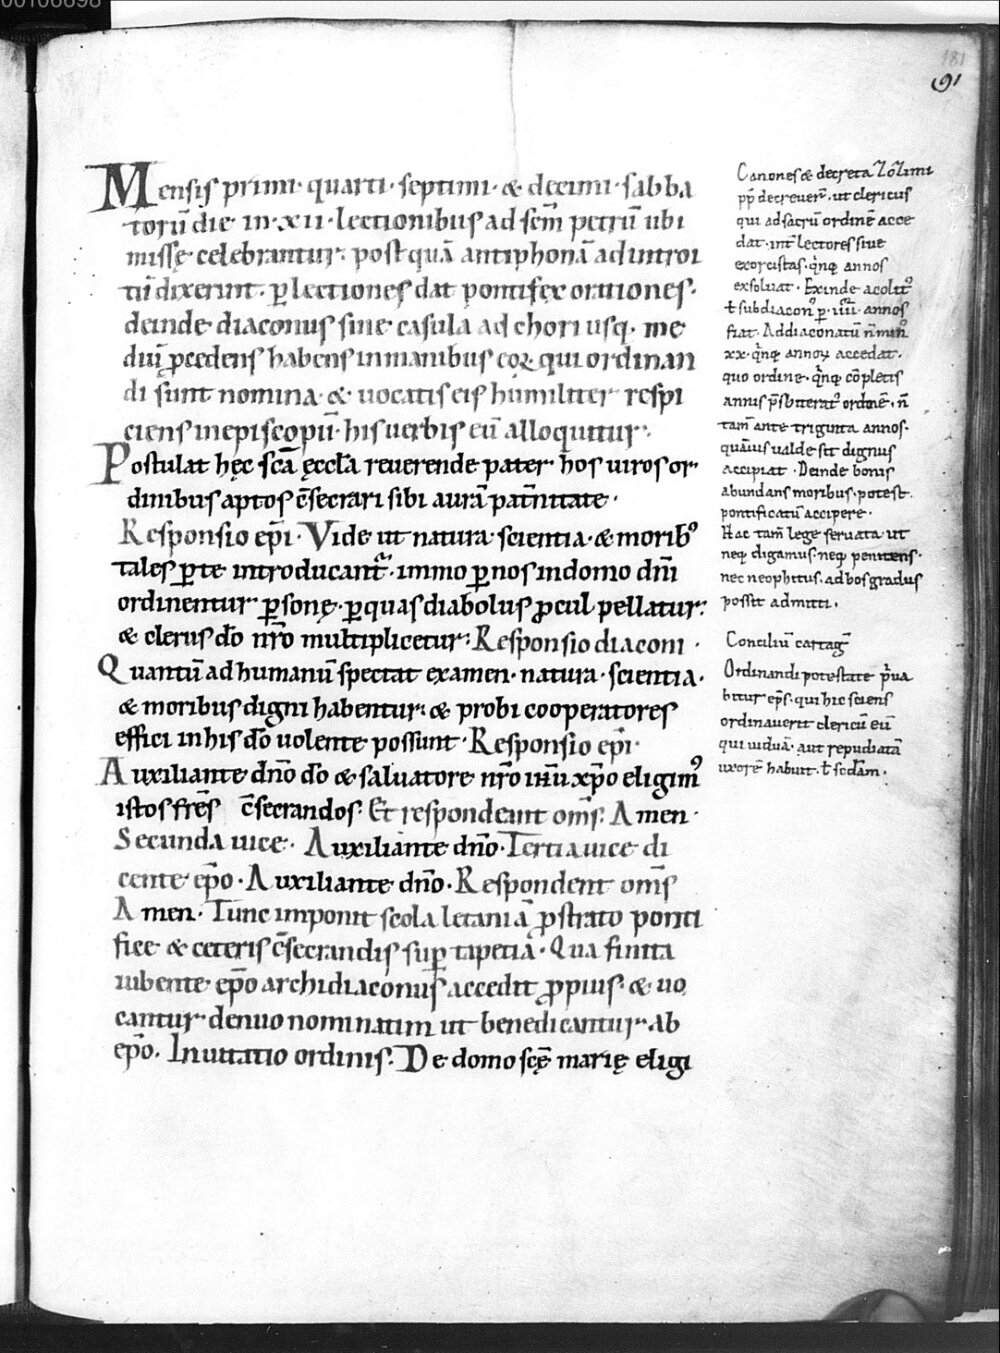 00106698
181
91
Mensis primi· quarti· septimi· & decimi· sabba
torū die in·xii·lectionibus ad scm̄ petrū ubi
missę celebrantur· postquā antiphonā ad introi
tū dixerint· p̲ lectiones dat pontifex orationes·
deinde diaconus sine casula ad chori usq· me
diū p̲cedens habens in manibus coꝝ qui ordinan
di sunt nomina· & uocatis eis humiliter respi
ciens in episcopū· his uerbis eū alloquitur·
Postulat hęc scā ęccla reuerende pater hos uiros or
dinibus aptos c̄secrari sibi a ur̄a pat̄nitate·
Responsio ep̄i· Vide ut natura· scientia· & morib⁹
tales p̲ te introducant᷑· immo p̲ nos in domo dn̄i
ordinentur p̲sonę· p̲ quas diabolus ꝓcul pellatur:
& clerus dō nr̄o multiplicetur: Responsio diaconi·
Quantū ad humanū spectat examen· natura· scientia·
& moribus digni habentur· & probi cooperatores
effici in his dō uolente possunt· Responsio ep̄i·
Auxiliante dn̄o dō & saluatore nr̄o ih̄u xp̄o eligim⁹
istos fr̄es c̄secrandos· Et respondeant om̄s: Amen·
Secunda uice· Auxiliante dn̄o· Tertia uice di
cente ep̄o· Auxiliante dn̄o· Respondent om̄s
Amen· Tunc imponit scola letaniā ꝓstrato ponti
fice & ceteris c̄secrandis sup̲ tapetiā· Qua finita
iubente ep̄o archidiaconus accedit ꝓpius· & uo
cantur denuo nominatim ut benedicantur· ab
ep̄o. Inuitatio ordinis. De domo scę̄ marię eligi
Canones & decreta Zozimi
pp̄ decreuer̄· ut clericus
qui ad sacrū ordinē acce
dat· int̄ lectores siue
exorcistas· q̄nq annos
exsoluat· Exinde acolit⁹
t̄ subdiacon⁹ p̲ iiii annos
fiat· Ad diaconatū n̄ min⁹
xx· q̄nq annoꝝ accedat·
quo ordine· q̄nq cōpletis
annis p̄sbiterat⁹ ordinē· n̄
tam̄ ante triginta annos·
quāuis ualde sit dignus
accipiat· Deinde bonis
abundans moribus· potest·
pontificatū accipere·
Hac tam̄ lege seruata ut
neq digamus neq penitens·
nec neophitus· ad hos gradus
possit admitti·
Conciliū cartaḡ
Ordinandi potestate p̄ua
bitur ep̄s· qui hic sciens
ordinauerit clericū eū
qui uiduā· aut repudiatā
uxorē habuit· t̄ sc̄dam·